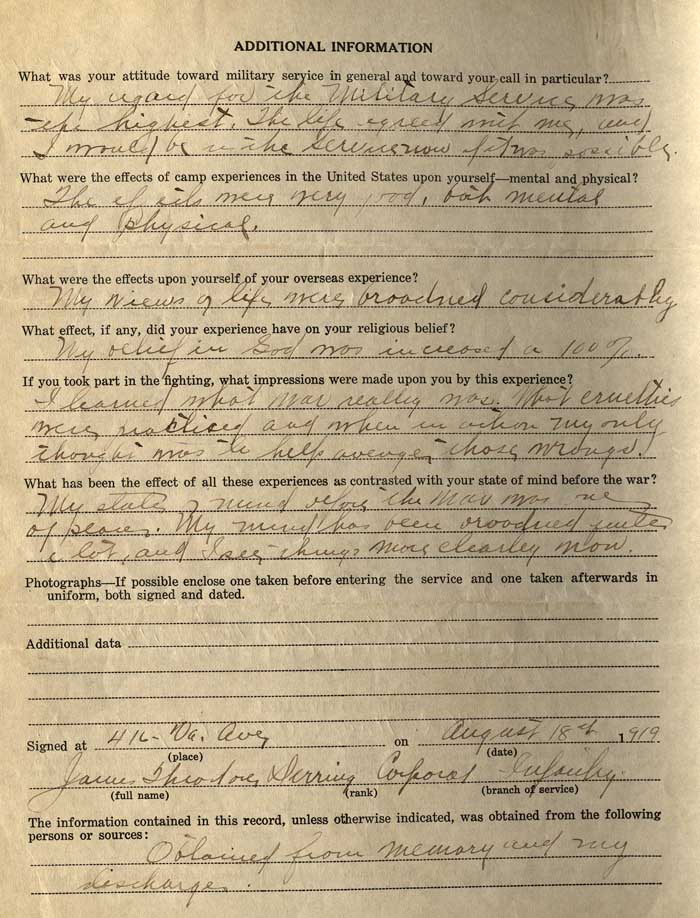 ADDITIONAL INFORMATION
What was your attitude toward military service in general and toward your call in particular?
My regard for the Military Service was
the highest. The life agreed with me, and
I would be in the service now if it was possible.
What were the effects of camp experiences in the United States upon yourself—mental and physical?
The effects were very good, both mental
and physical.
What were the effects upon yourself of your overseas experience?
My views of life were broadned considerably
What effect, if any, did your experience have on your religious belief?
My belief in God was increased a 100%.
If you took part in the fighting, what impressions were made upon you by this experience?
I learned what war really was. What cruelties
were practiced and when in action my only
thought was to help avenge those wrongs.
What has been the effect of all these experiences as contrasted with your state of mind before the war?
My state of mind before the war was one
of peace. My mind has been broadned quite
a lot, and I see things more clearley now.
Photographs—If possible enclose one taken before entering the service and one taken afterwards in
uniform, both signed and dated.
Additional data
Signed at 416- Va. Ave, on August 18th 1919
(place) (date)
James Theodore Derring Corporal Infantry.
(full name) (rank) (branch of service)
The information contained in this record, unless otherwise indicated, was obtained from the following
persons or sources:
Obtained from memory and my
discharge.